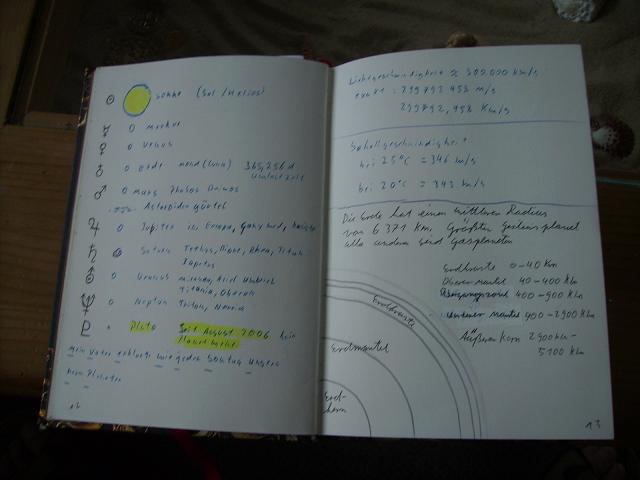 ☉ Sonne (Sol/Helios)
☿ Merkur
♀ Venus
♁ Erde Mond (Luna) 365,256 d
Umlaufzeit
♂ Mars Phobos Deimos
Asteroiden gürtel
♃ Jupiter Io, Europa, Ganymed,
♄ Saturn Tethys, Dione, Rhea, Titan
Japetus
Uranus Miranda, Ariel Umbriel
Titania, Oberon
♆ Neptun Triton, Nereid
♇ Pluto Seit August 2006 kein
Planet mehr
Mein Vater erklärt mir jeden Sonntag Unsere
neun Planeten
12
Lichtgeschwindigkeit ≈ 300.000 Km/s
exakt: 299792458 m/s
299792,458 Km/s
Schallgeschwindigkeit
bei 25°C = 346 m/s
bei 20°C = 343 m/s
Die Erde hat einen mittleren Radius
von 6371 Km, Größten Gesteinsplanet
alle anderen sind Gasplaneten
Erdkruste 0-40 Km
Oberer mantel 40-400 Km
Übergangszone 400-900 Km
Unterer Mantel 900-2900 Km
Äußerer Kern 2900 Km-
5100 Km
Erdkruste
Erdmantel
Erd-
kern
13